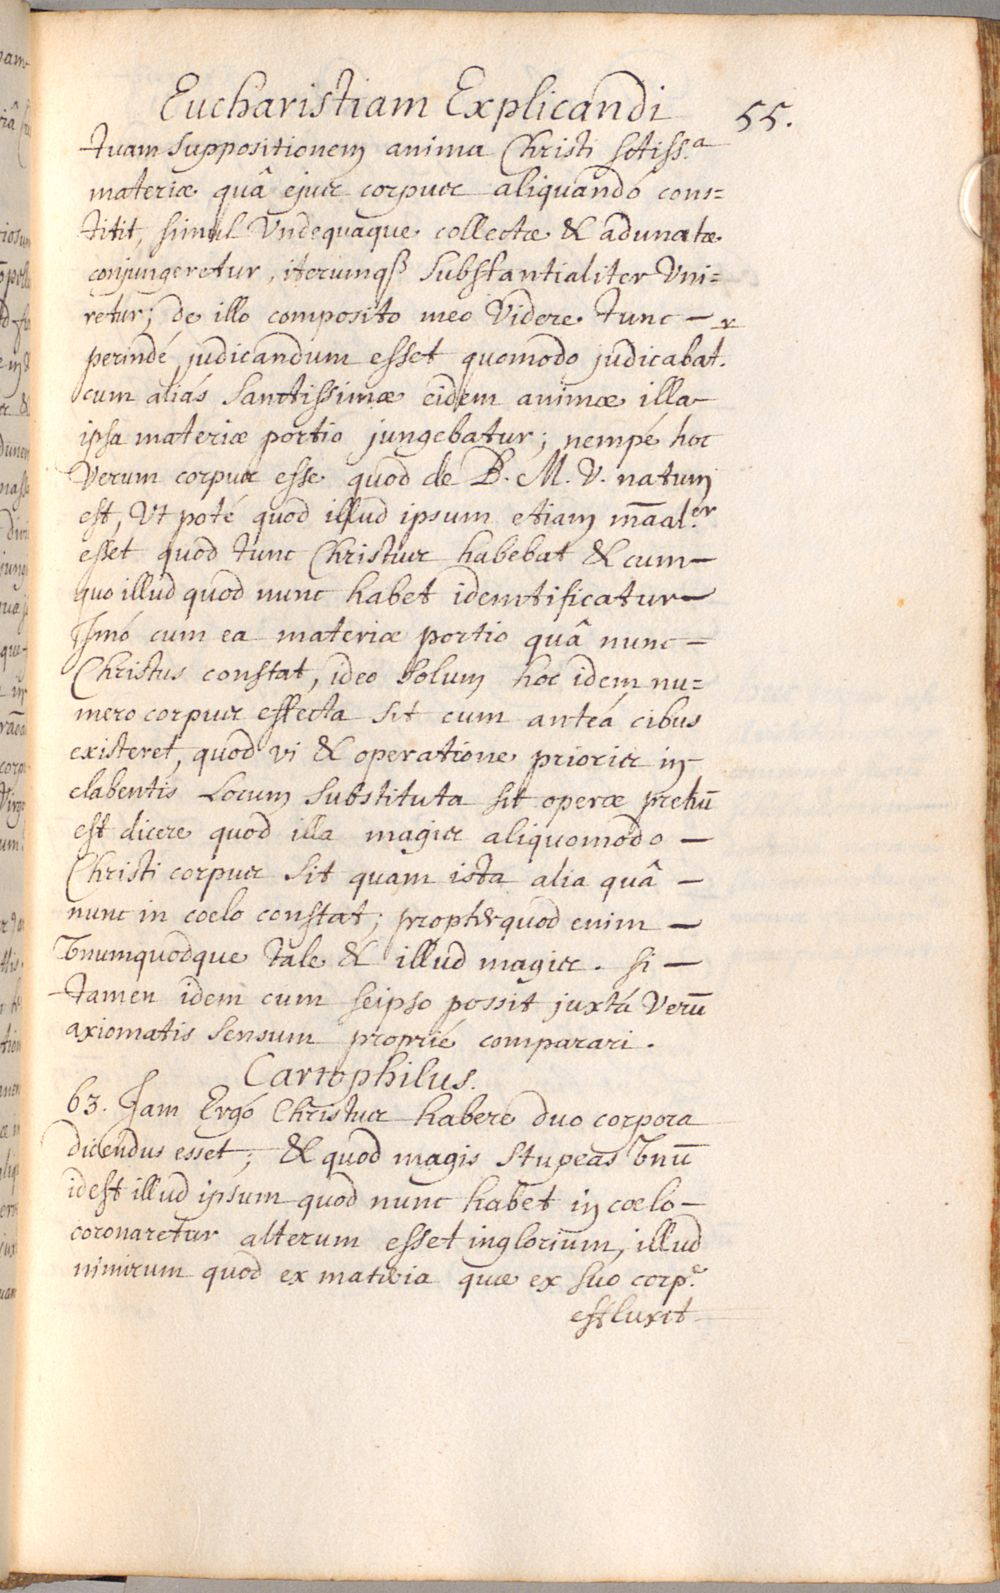 Eucharistiam Explicandi 55.
tuam suppositionem anima Christi sctiss.a
materiæ quâ ejus corpus aliquandó cons=
titit, simul Vndequaque collectæ & adunatæ
conjungeretur, iterumqß substantialiter Vni=
retur; de illo composito meo Videre tunc —
perindé judicandum esset quomodo judicabat.r
cum aliás Sanctissimæ eidem animæ illa
ipsa materiæ portio jungebatur; nempé hoc
Verum corpus esse quod de B. M. V. natum
est, Vt poté quod illud ipsum etiam māal.er
esset quod tunc Christus habebat & cum —
quo illud quod nunc habet idemtificatur —
Imó cum ea materiæ portio quâ nunc —
Christus constat, ideo solum hoc idem nu=
mero corpus effecta sit cum anteá cibus
existeret, quod vi & operatione prioris in
elabentis Locum substituta sit operæ pretiū
est dicere quod illa magis aliquomodo —
Christi corpus sit quam ista alia quâ —
nunc in coelo constat; propter quod enim —
Vnumquodque tale & illud magis. si —
tamen idem cum seipso possit juxtá Verū
axiomatis sensum proprié comparari.
Cartophilus.
63. Jam Ergó Christus habere duo corpora
dicendus esset; & quod magis stupeas Vnū
idest illud ipsum quod nunc habet in coelo —
coronaretur alterum esset inglorium, illud
nimirum quod ex materia quæ ex suo corp.e
effluxit